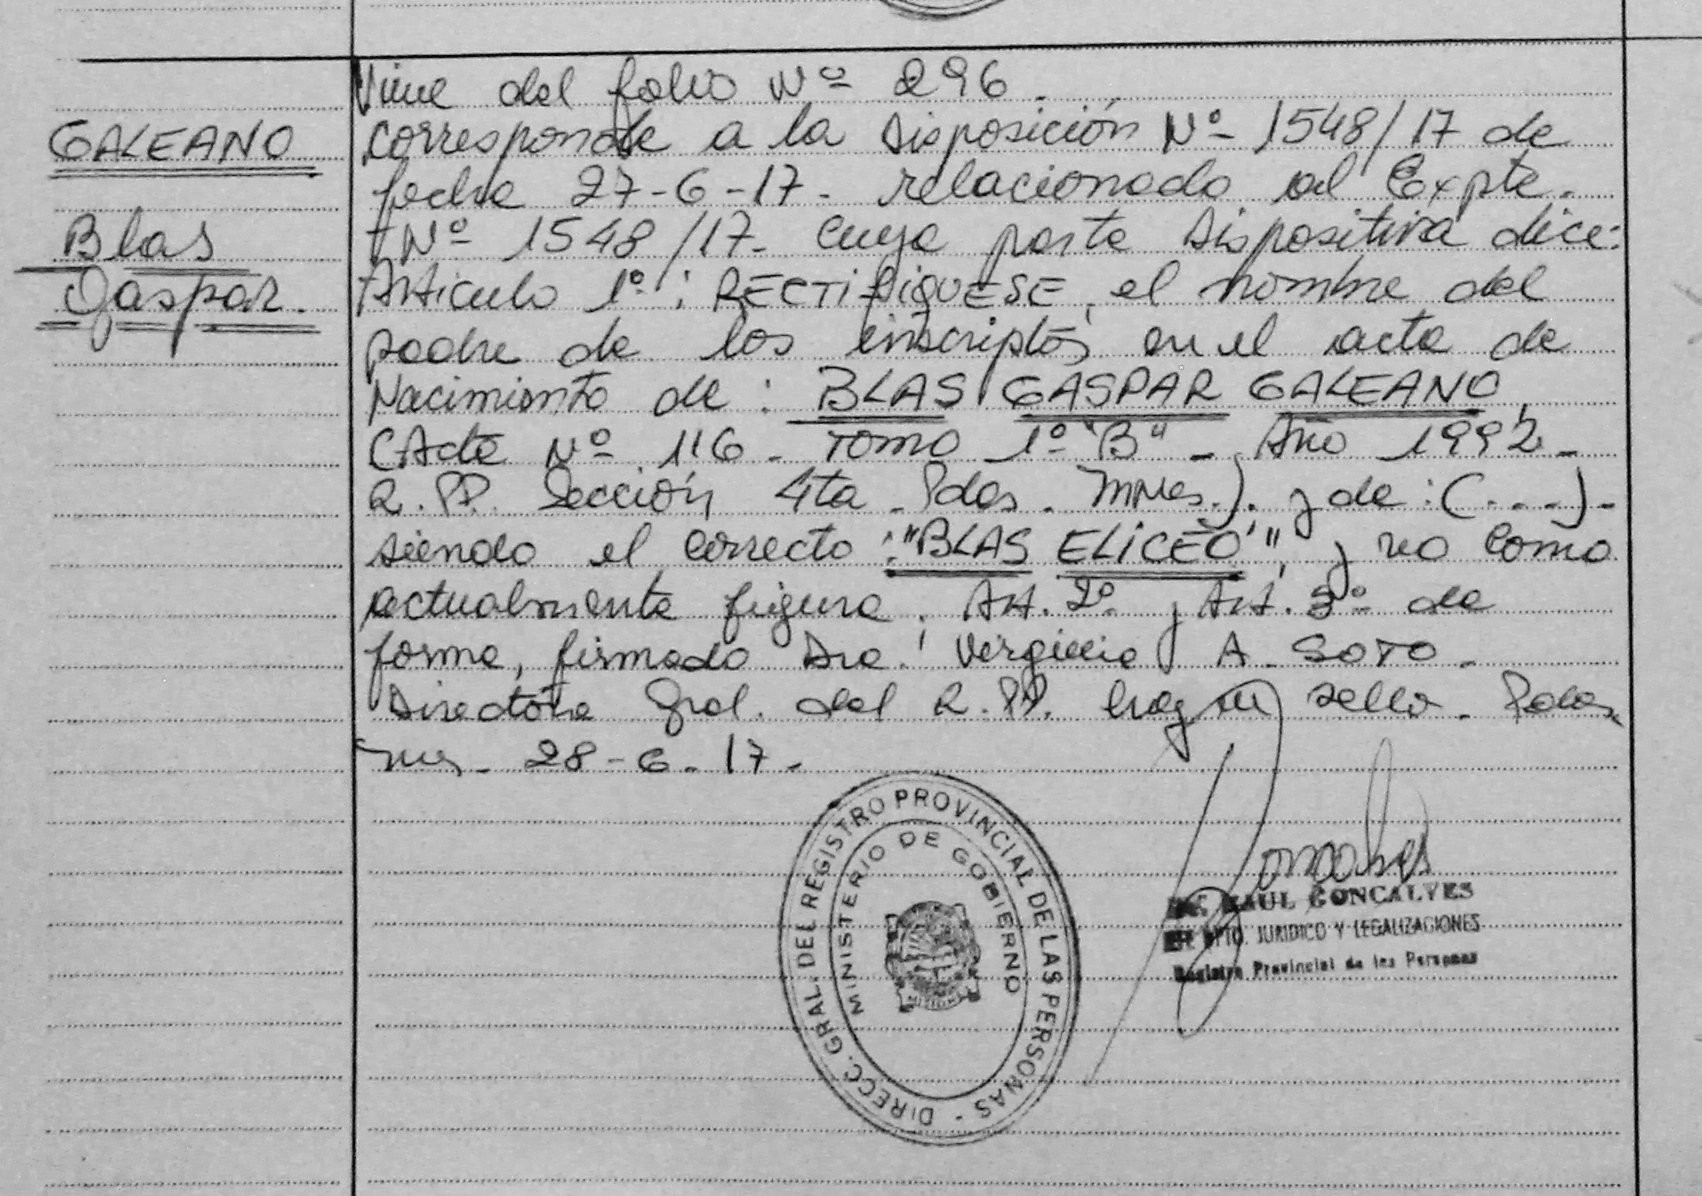 Viene del folio Nº 296.
GALEANO
Blas
Gaspar.
corresponde a la disposición Nº 1548/17 de
fecha 27-6-17. relacionado al Expte.
Nº 1548/17. cuya parte dispositiva dice:
Articulo 1º: RECTIFIQUESE, el nombre del
padre de los inscriptos, en el acta de
Nacimiento de: BLAS GASPAR GALEANO,
(Acta Nº 116 - Tomo 1º "B" - Año 1992 -
R.PP. Sección 4ta. Pdas. Mnes.). y de: (...).
siendo el correcto: "BLAS ELICEO", y no como
actualmente figura. Art. 2º y Art. 3º de
forma, firmado Dra. Virginia A. SOTO.
Directora Gral. del R.PP. hay un sello. Pdas.
Mnes. 28-6-17.
DIRECC. GRAL. DEL REGISTRO PROVINCIAL DE LAS PERSONAS -
MINISTERIO DE GOBIERNO
MISIONES
RAUL GONCALVES
DPTO. JURIDICO Y LEGALIZACIONES
Registro Provincial de las Personas